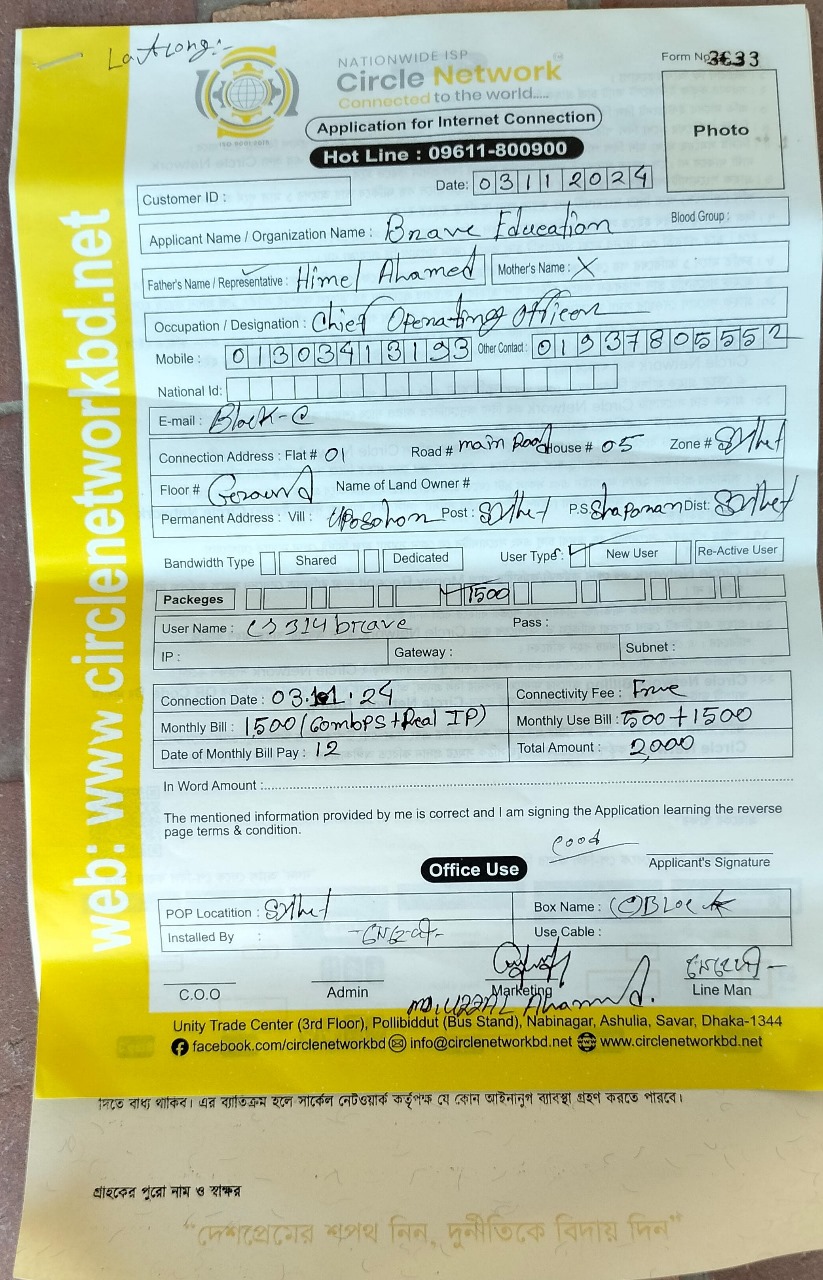 Lat Long:-
NATIONWIDE ISP
Form No 3633
Circle Network
Connected to the world.....
ISO 9001:2015
Application for Internet Connection
Photo
Hot Line : 09611-800900
Date: 03112024
Customer ID :
Blood Group :
Applicant Name / Organization Name : Brave Education
Father's Name / Representative : Himel Ahamed Mother's Name : X
Occupation / Designation : Chief Operating Officer
Mobile : 01303413193 Other Contact : 01937805552
National Id:
E-mail : Block-C
Connection Address : Flat # 01 Road # main Road House # 05 Zone # Sylhet
Floor # Ground Name of Land Owner #
Permanent Address : Vill : Uposohon Post : Sylhet P.S. Shaporan Dist: Sylhet
Bandwidth Type Shared Dedicated User Type : New User Re-Active User
Packeges 1500
User Name : CS314brave Pass :
IP : Gateway : Subnet :
Connection Date : 03.11.24 Connectivity Fee : Free
Monthly Bill : 1,500 (60mbps + Real IP) Monthly Use Bill : 500 + 1500
Date of Monthly Bill Pay : 12 Total Amount : 2,000
In Word Amount :
The mentioned information provided by me is correct and I am signing the Application learning the reverse
page terms & condition.
Applicant's Signature
Office Use
POP Locatition : Sylhet Box Name : (C) Block
Installed By : মেহেদী Use Cable :
মেহেদী
C.O.O Admin Marketing Line Man
MD. UZZAL Ahamed.
Unity Trade Center (3rd Floor), Pollibiddut (Bus Stand), Nabinagar, Ashulia, Savar, Dhaka-1344
facebook.com/circlenetworkbd info@circlenetworkbd.net www.circlenetworkbd.net
web: www.circlenetworkbd.net
দিতে বাধ্য থাকিব। এর ব্যতিক্রম হলে সার্কেল নেটওয়ার্ক কর্তৃপক্ষ যে কোন আইনানুগ ব্যবস্থা গ্রহণ করতে পারবে।
গ্রাহকের পুরো নাম ও স্বাক্ষর
"দেশপ্রেমের শপথ নিন, দুর্নীতিকে বিদায় দিন"